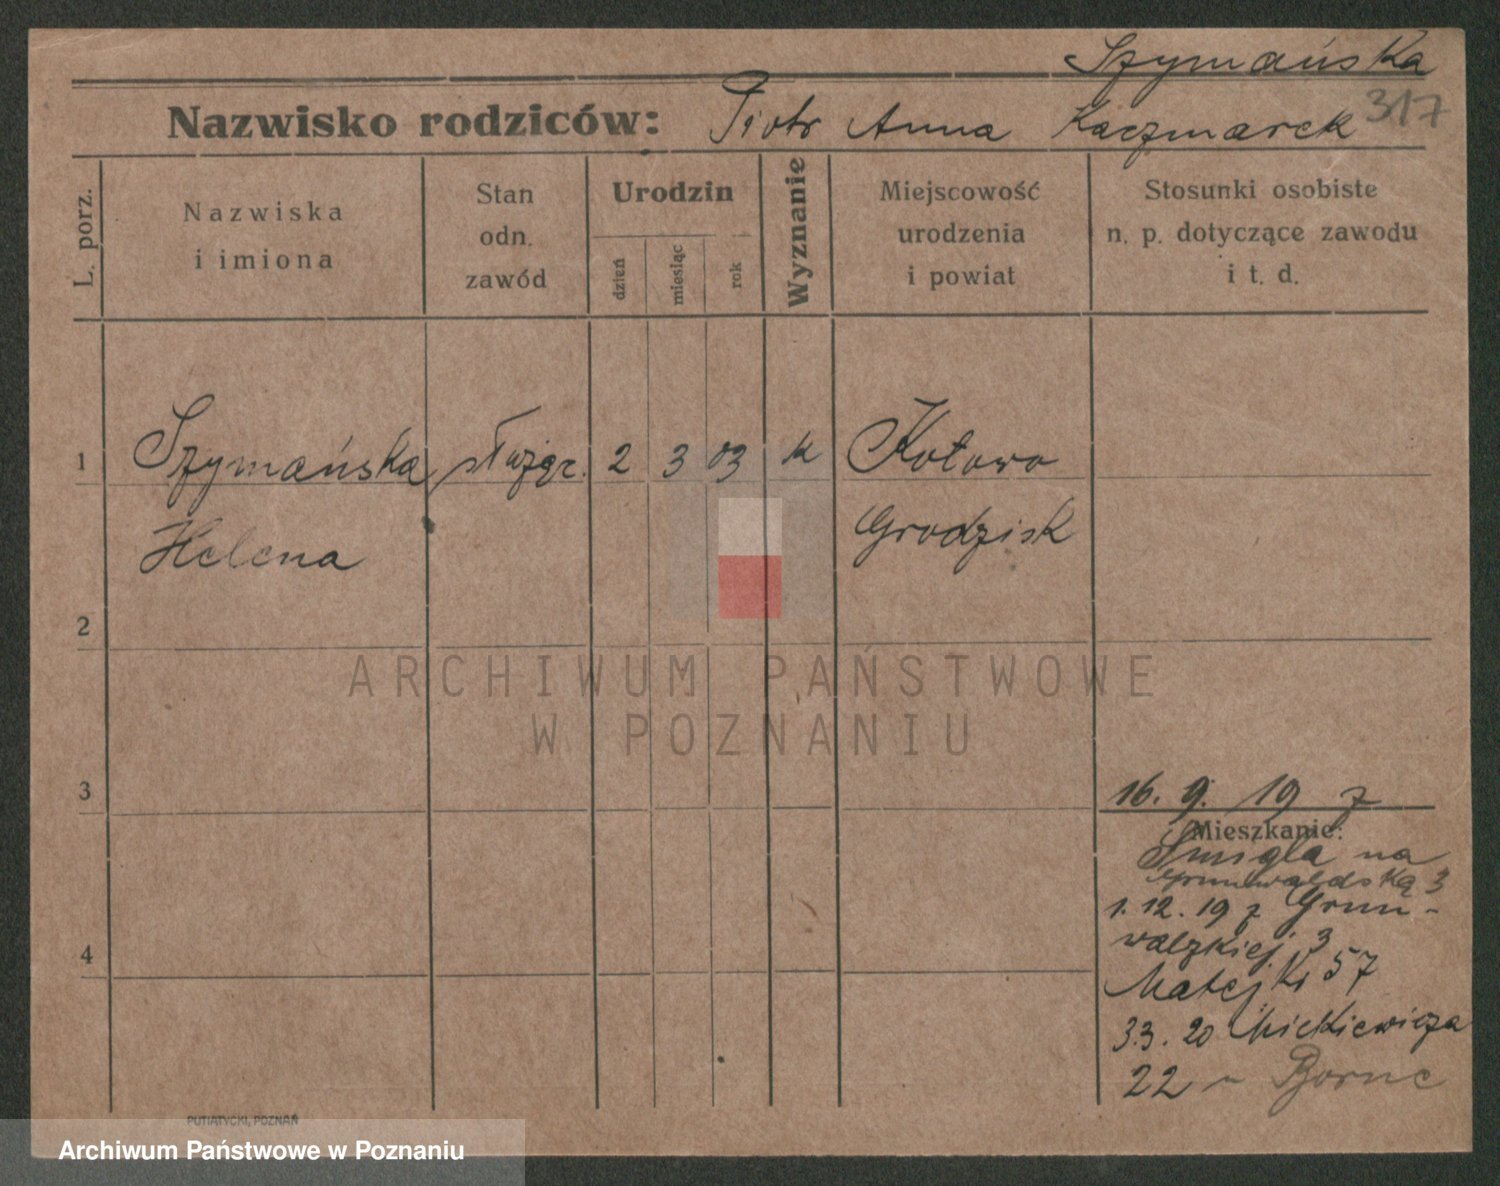 Szymańska
Nazwisko rodziców: Piotr Anna Kaczmarek 317
L. porz.
Nazwiska
i imiona
Stan
odn.
zawód
Urodzin
dzień
miesiąc
rok
Wyznanie
Miejscowość
urodzenia
i powiat
Stosunki osobiste
n. p. dotyczące zawodu
i t. d.
1 Szymańska służąc. 2 3 03 k Kotowo
Helena Grodzisk
2
ARCHIWUM PAŃSTWOWE
W POZNANIU
3
16. 9. 19 z
Mieszkanie:
Śmigla na
Grunwaldską 3
1.12.19 z Grun-
waldzkiej 3
4
Matejki 57
3.3.20 Mickiewicza
22
PUTIATYCKI, POZNAŃ
Archiwum Państwowe w Poznaniu